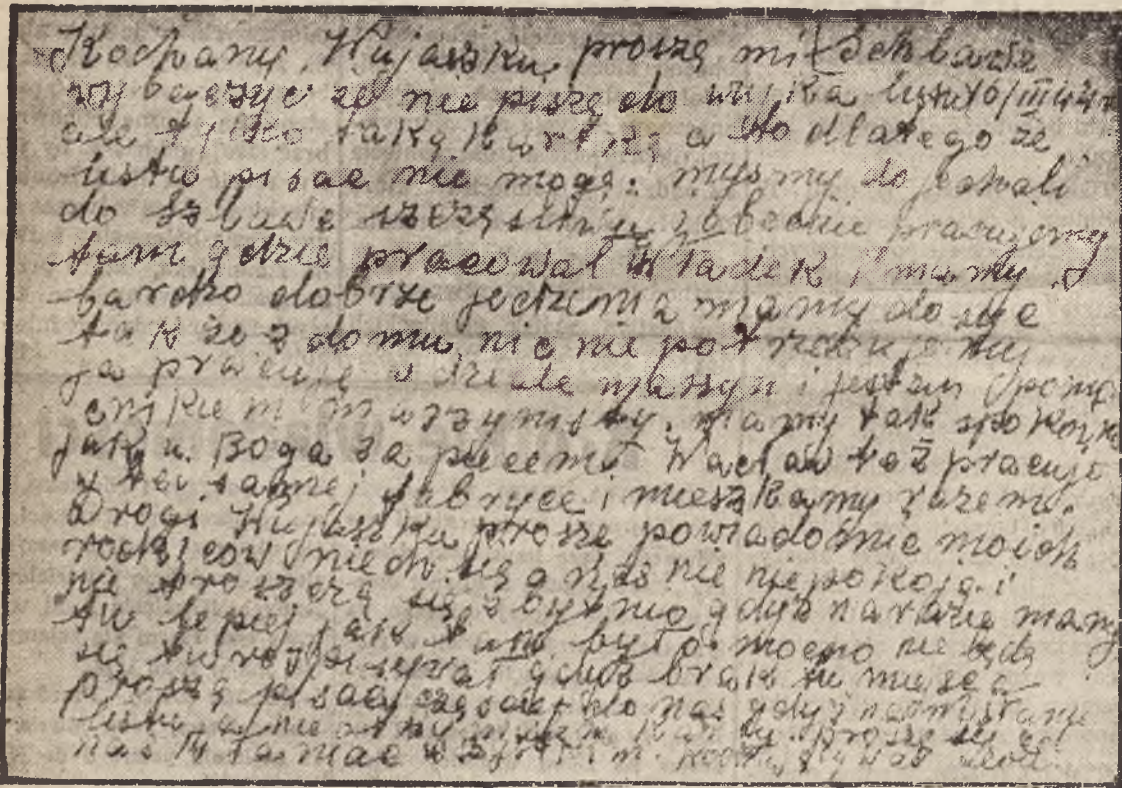 Kochany Wujaszku, proszę mi
wybaczyć że nie piszę do wujka listu 16/III 44 r
ale tylko taką kartkę a to dlatego że
listu pisać nie mogę. myśmy dojechali
do szczęśliwie pracujemy
tam gdzie pracował Władek i mamy
bardzo dobrze jedzenia mamy dosyć
tak że z domu nic nie potrzebujemy
ja pracuję w dziale maszyn i jestem
mamy tak
jak u Boga za piecem Wacław też pracuje
w tej samej fabryce i mieszkamy razem.
Drogi Wujaszku proszę powiadomić moich
rodziców niech się o nas nie niepokoją i
nie troszczą się zbytnio gdyż narazie mamy
tu lepiej jak tam było mocno nie będę
się tu rozpisywał gdyż brak tu miejsca
proszę pisać do nas gdyż
listu a nie proszę się o
nas